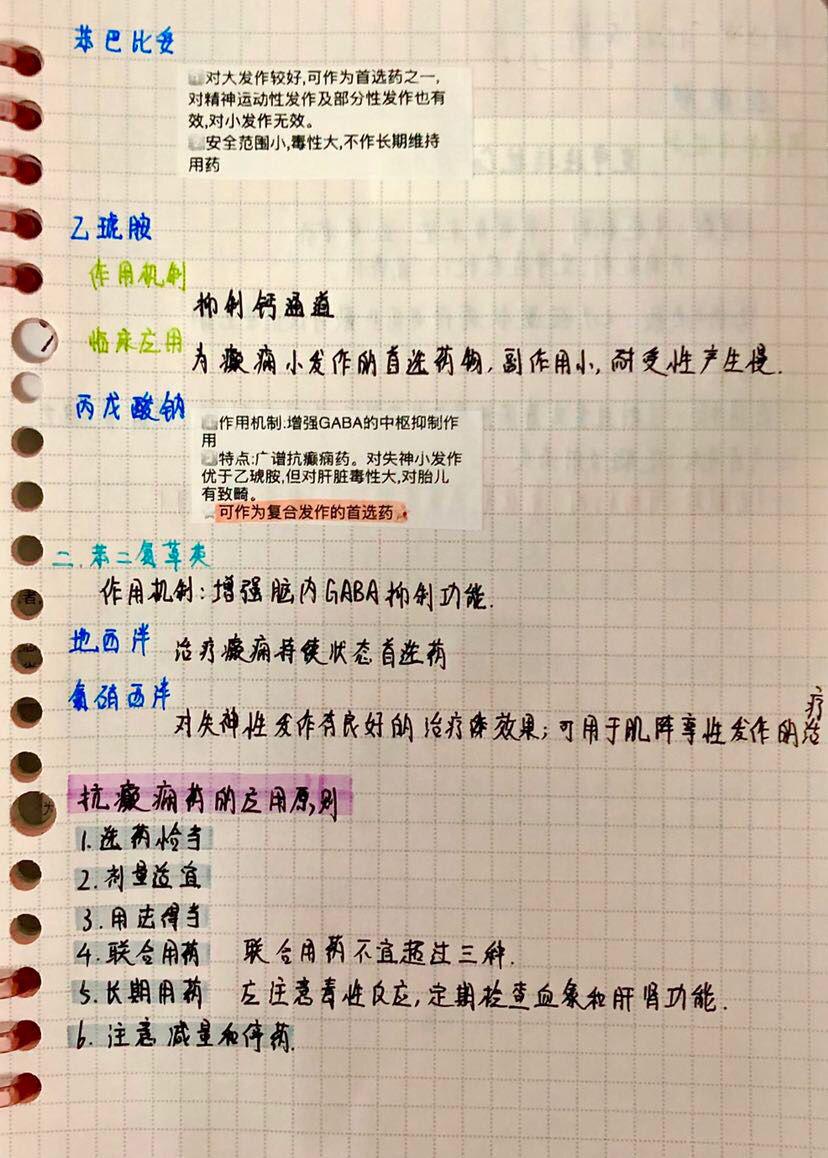 苯巴比妥
1对大发作较好,可作为首选药之一,
对精神运动性发作及部分性发作也有
效,对小发作无效。
2安全范围小,毒性大,不作长期维持
用药
乙琥胺
作用机制
抑制钙通道
临床应用
为癫痫小发作的首选药物,副作用小,耐受性产生慢.
丙戊酸钠
1作用机制:增强GABA的中枢抑制作
用
2特点:广谱抗癫痫药。对失神小发作
优于乙琥胺,但对肝脏毒性大,对胎儿
有致畸。
可作为复合发作的首选药
二.苯二氮䓬类
作用机制:增强脑内GABA抑制功能.
地西泮 治疗癫痫持续状态首选药
氯硝西泮
对失神性发作有良好的治疗效果;可用于肌阵挛性发作的治疗
抗癫痫药的应用原则
1.选药恰当
2.剂量适宜
3.用法得当
4.联合用药 联合用药不宜超过三种.
5.长期用药 应注意毒性反应,定期检查血象和肝肾功能.
6.注意减量和停药.